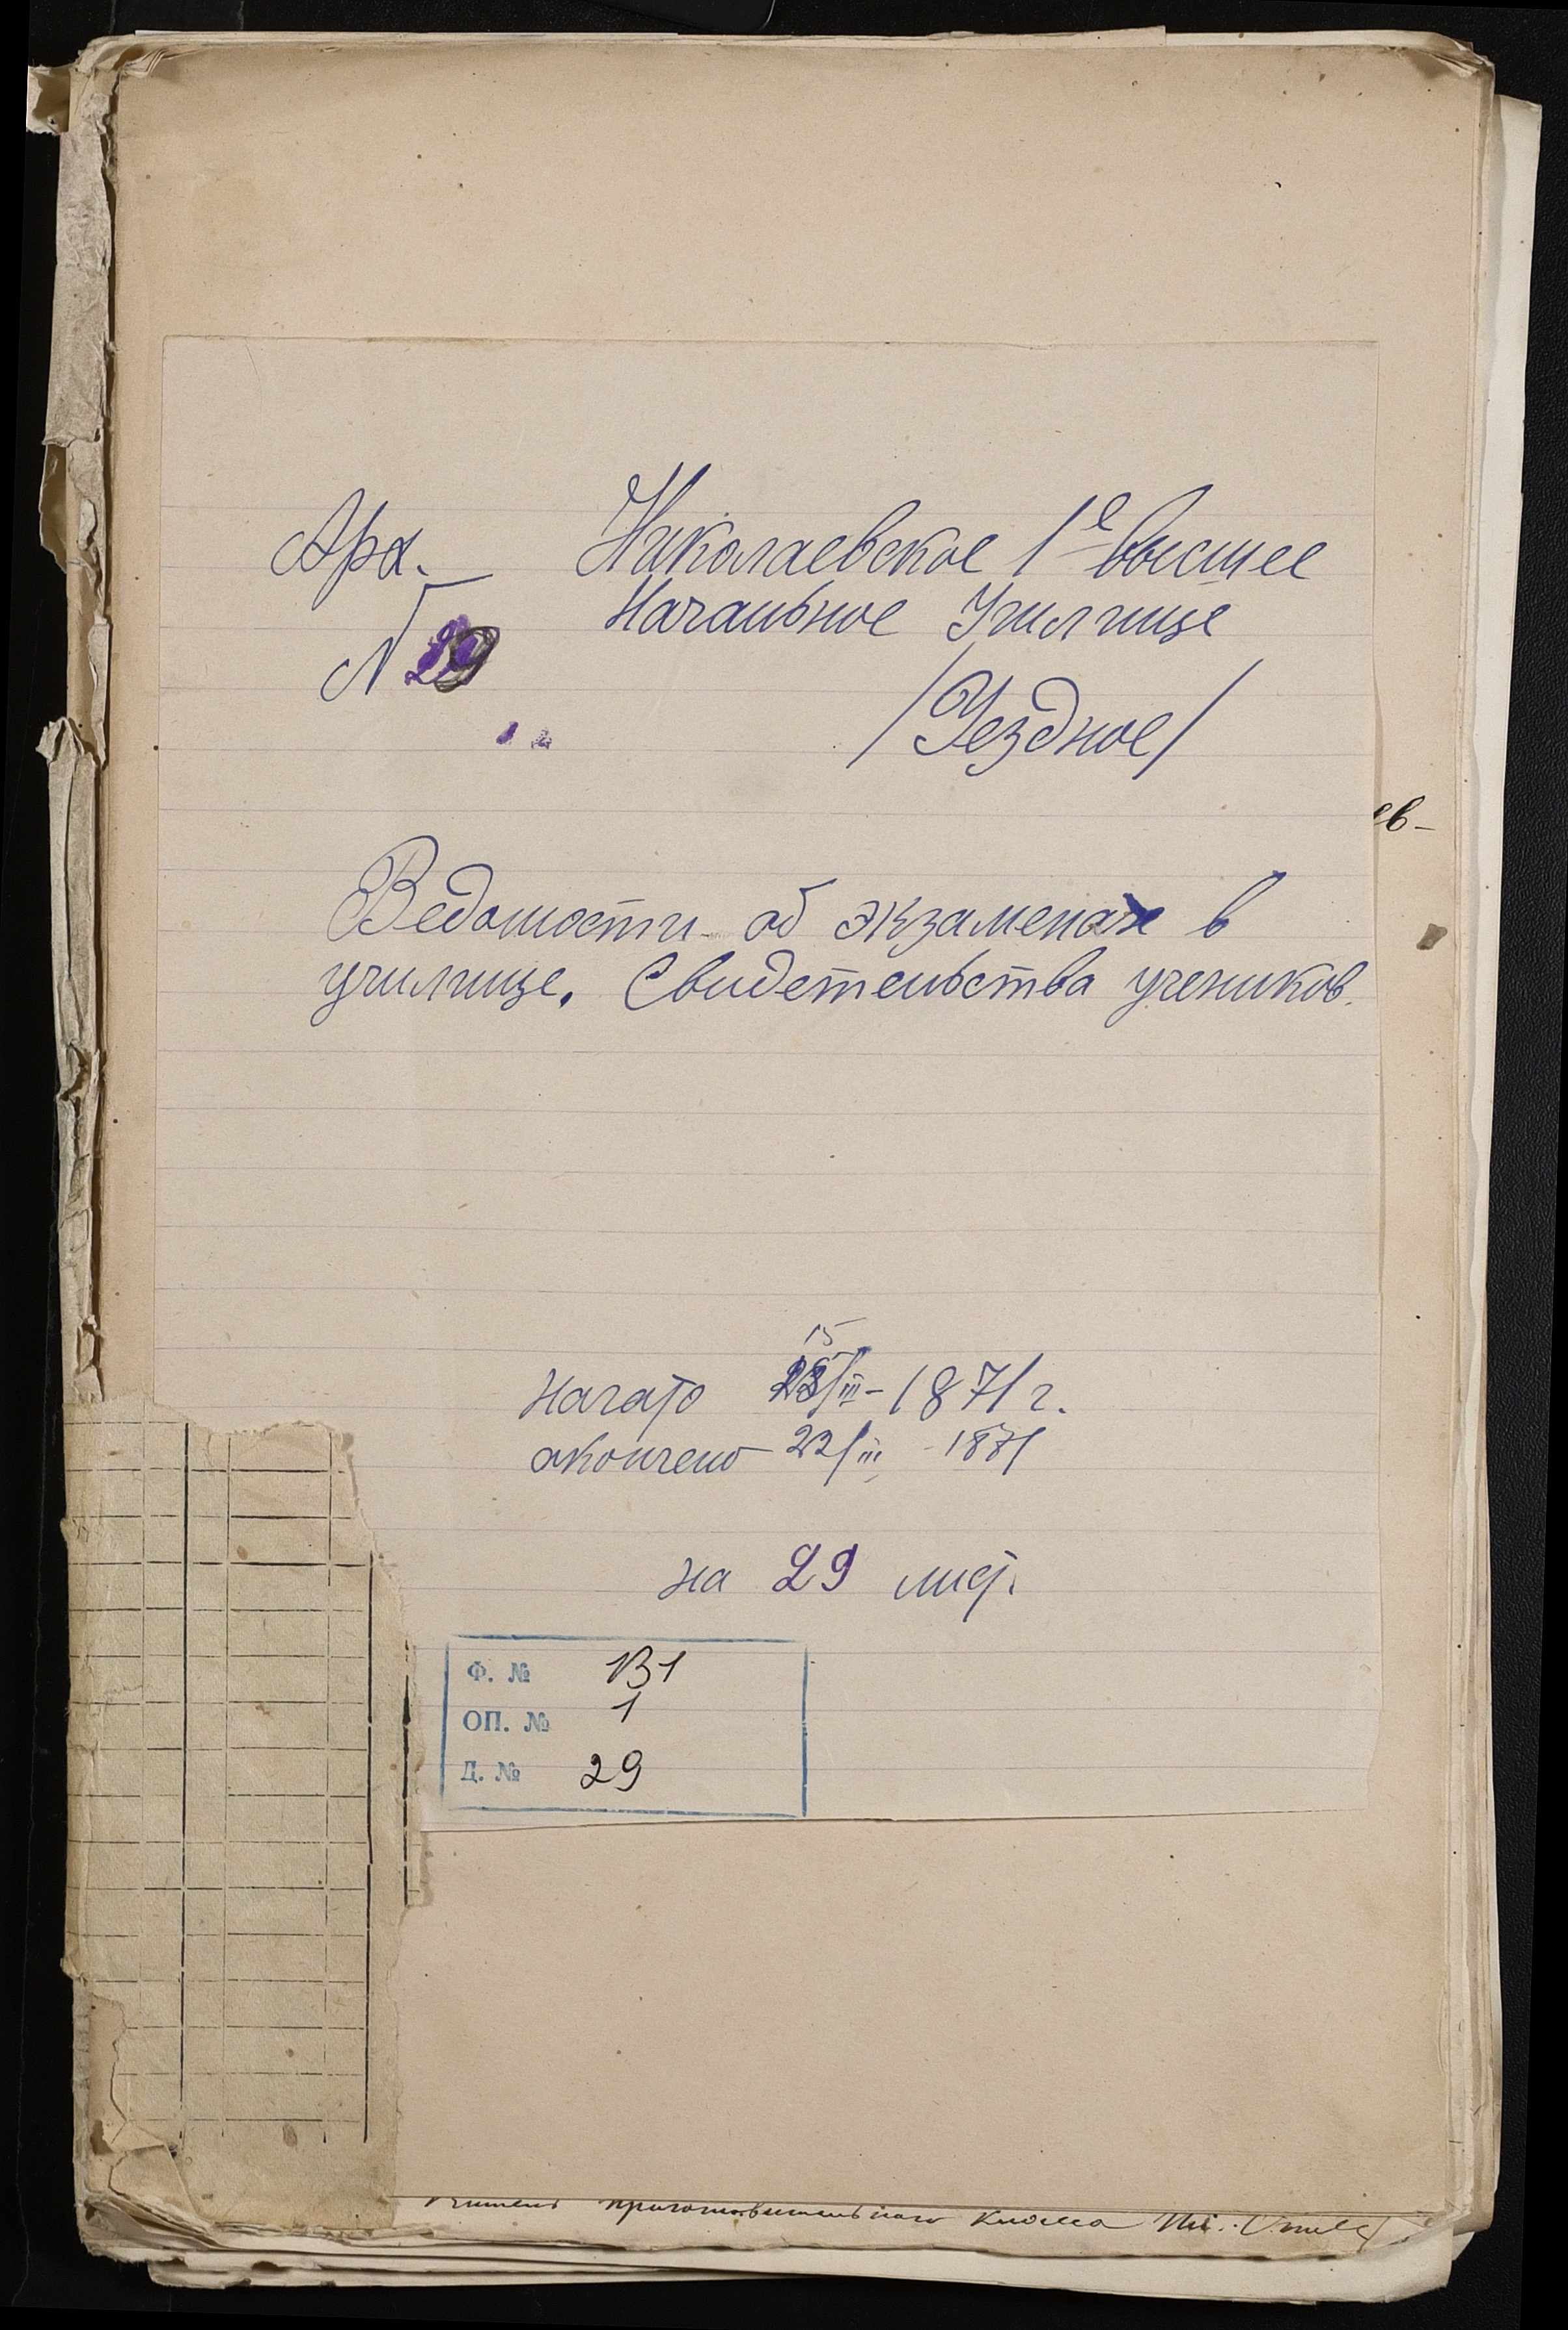 Арх. Николаевское 1е высшее
Начальное Училище
№ 29
/Уездное/
ев-
Ведомости об экзаменах в
училище. Свидетельства учеников.
15
начато /III-1871 г.
окончено 22/III -1871
на 29 лист.
Ф. № 131
ОП. № 1
Д. № 29
приготовительного класса